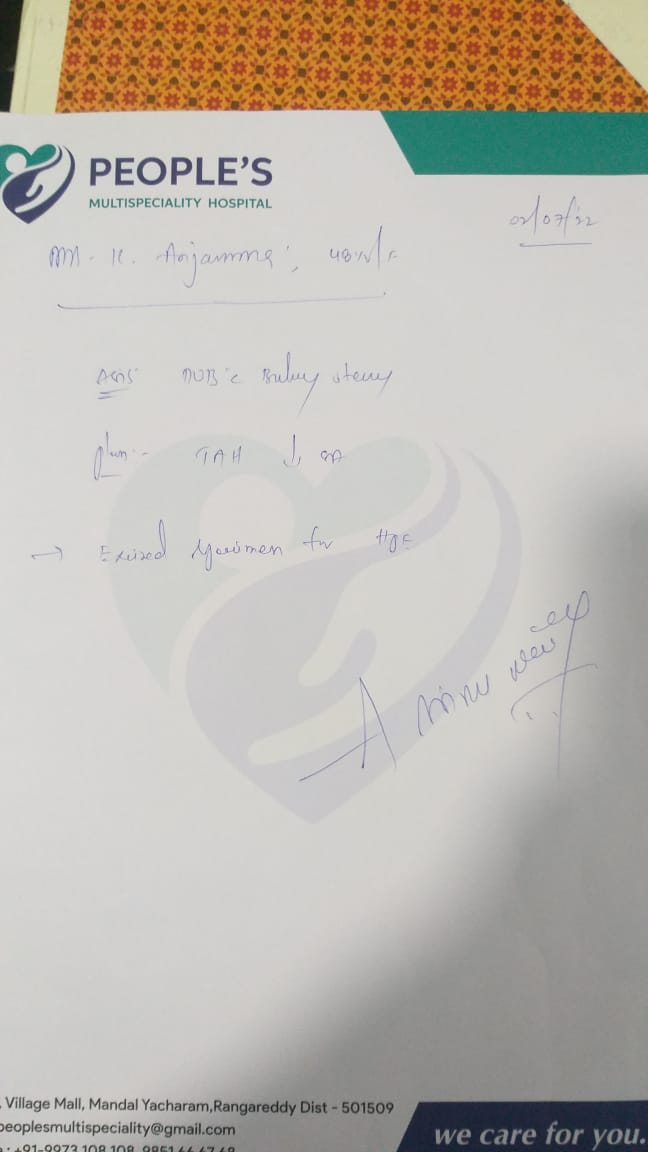 PEOPLE'S
MULTISPECIALITY HOSPITAL
02/07/22
K. Anjamma, 48y/F
DUB c Bulky
Plan:- TAH ↓ SA
→ Excised specimen for HPE
Village Mall, Mandal Yacharam,Rangareddy Dist - 501509
peoplesmultispeciality@gmail.com
+91-9973 108 108
we care for you.